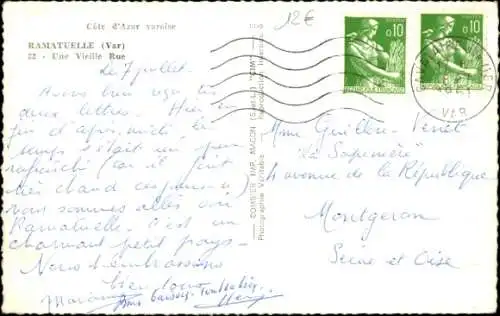 Côte d'Azur varoise
RAMATUELLE (Var)
22 - Une Vieille Rue
12€
Le 7 juillet.
Avons bien reçu tes
deux lettres. Hier en
fin d'après-midi le
temps s'était un peu
rafraîchi car il fait
très chaud
nous sommes allés
Ramatuelle. C'est un
charmant petit pays.
Nous t'embrassons
bien tous
COMBIER IMP. MACON (S.-et-L.) "CIM"
Photographie Véritable
0,10
0,10
VAR
Mme Guillou-Venet
"La Sapinière"
4 avenue de la République
Montgeron
Seine et Oise